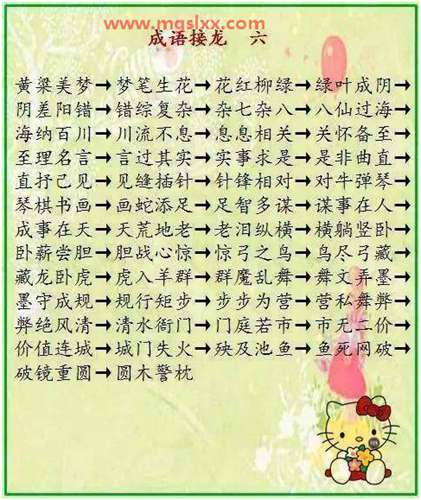 www.mqslxx.com
成语接龙 六
黄粱美梦→梦笔生花→花红柳绿→绿叶成阴→
阴差阳错→错综复杂→杂七杂八→八仙过海→
海纳百川→川流不息→息息相关→关怀备至→
至理名言→言过其实→实事求是→是非曲直→
直抒己见→见缝插针→针锋相对→对牛弹琴→
琴棋书画→画蛇添足→足智多谋→谋事在人→
成事在天→天荒地老→老泪纵横→横躺竖卧→
卧薪尝胆→胆战心惊→惊弓之鸟→鸟尽弓藏→
藏龙卧虎→虎入羊群→群魔乱舞→舞文弄墨→
墨守成规→规行矩步→步步为营→营私舞弊→
弊绝风清→清水衙门→门庭若市→市无二价→
价值连城→城门失火→殃及池鱼→鱼死网破→
破镜重圆→圆木警枕